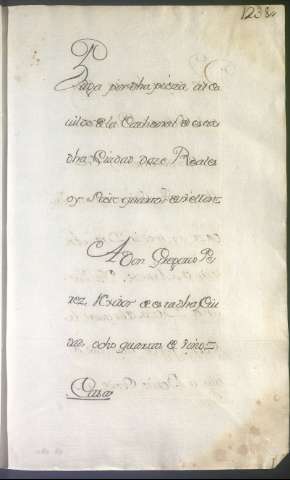 1238
Paga por dha pieza al ca
uildo de la Cathedral de esta
dha Ciudad doze Reales
y seis quartos de vellon
A Don Gregorio Pe
rez, Vezino de esta dha Ciu
dad ocho quartos de
Casa